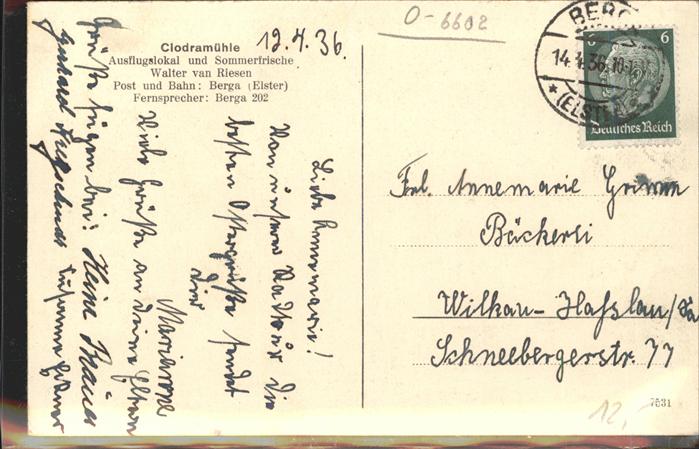 Clodramühle
Ausflugslokal und Sommerfrische
Walter van Riesen
Post und Bahn: Berga (Elster)
Fernsprecher: Berga 202
12.4.36.
Liebe Annemarie!
Von unserer Radtour die
besten Ostergrüße sendet
Dir
Marianne
Viele Grüße an Deine Eltern
Grüße fügen bei: Heinz
Gerhard
O-6602
BERGA
14.4.36.
(ELSTER)
6 6
Deutsches Reich
Frl. Annemarie Grimm
Bäckerei
Wilkau-Haßlau/Sa
Schneebergerstr. 77
7531
12,-